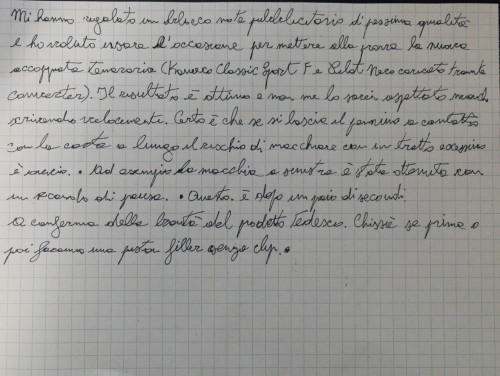 Mi hanno regalato un blocco note pubblicitario di pessima qualità
e ho voluto usare l'occasione per mettere alla prova la nuova
accoppiata temeraria (Kaweco Classic Sport F e Pelat Nero caricato tramite
converter). Il risultato è ottimo e non me lo sarei aspettato
scrivendo velocemente. Certo è che se si lascia il pennino a contatto
con la carta a lungo il rischio di macchiare con un tratto eccessivo
è • Ad esempio la macchia a sinistra è stata ottenuta con
un secondo di pausa. • Questa è dopo un paio di secondi.
A conferma della bontà del prodotto Tedesco. Chissà se prima o
poi faranno una piston filler senza clip. •